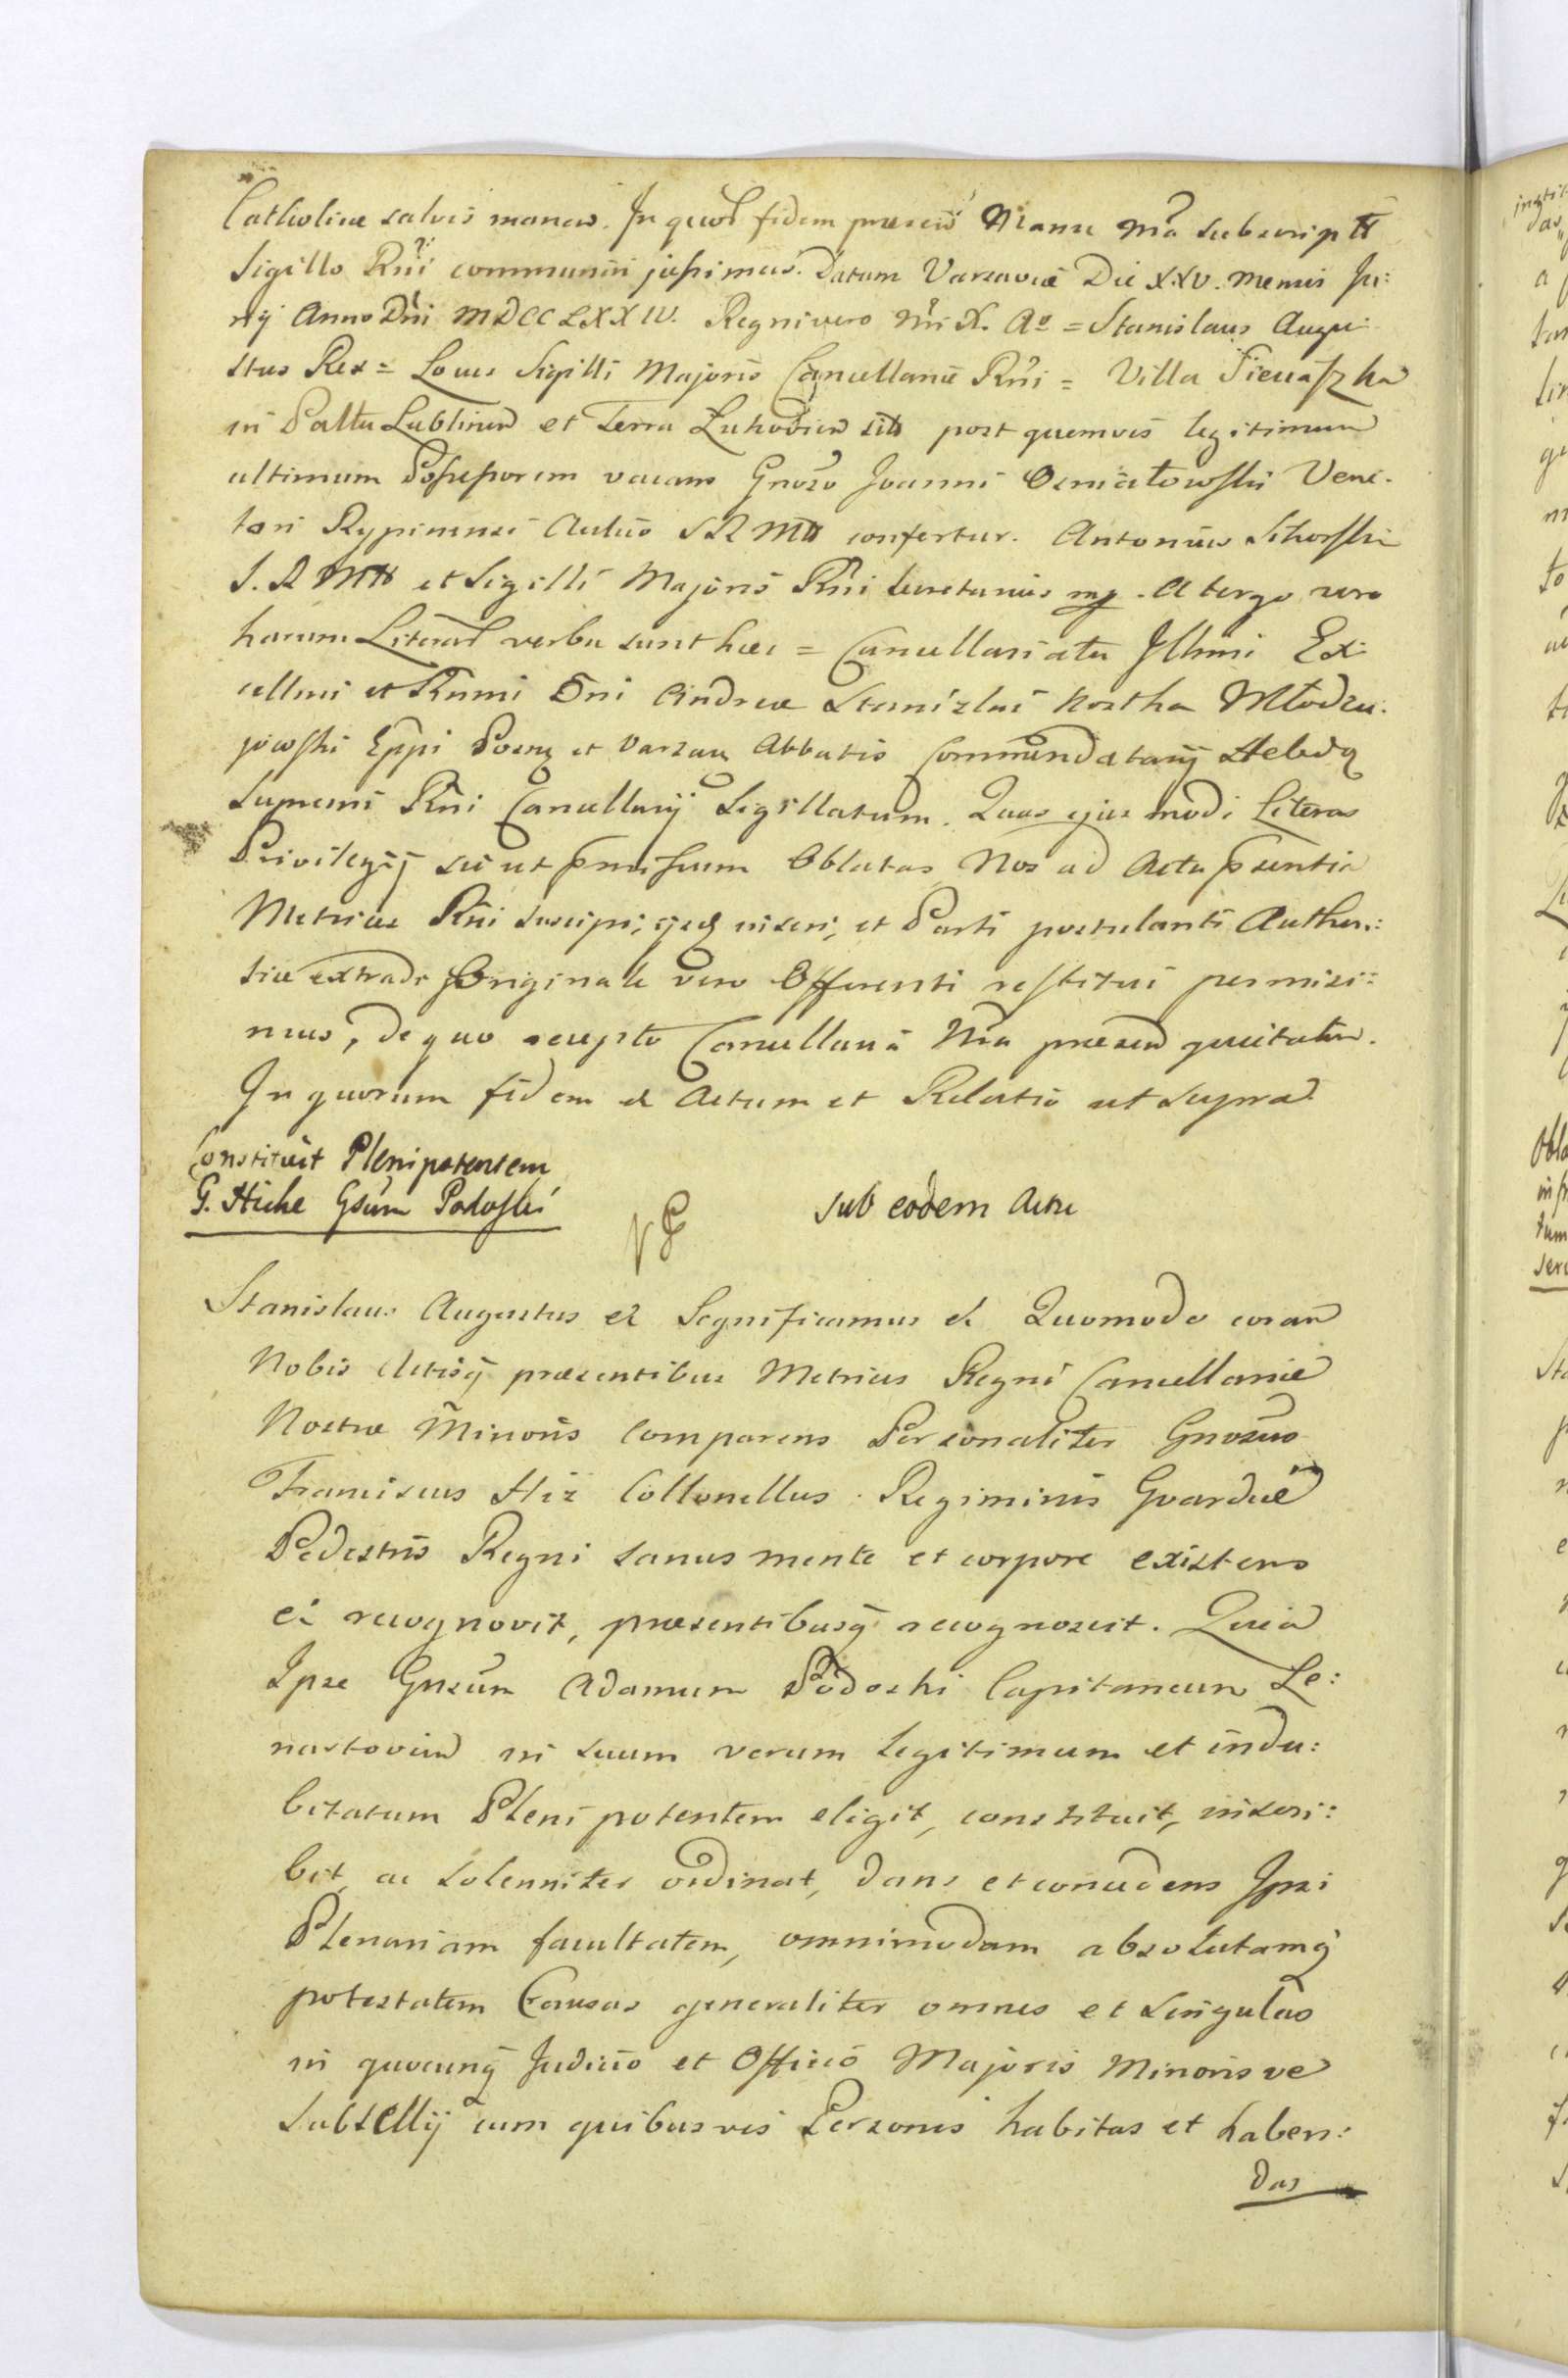 Catholicæ salvis manen. In quor fidem præsens Manu Nra subscriptt
Sigillo Rni communiri jussimus. Datum Varsaviæ Die XXV. Mensis Ju:
nij Anno Dni MDCCLXXIV. Regni vero Nri X. Ao = Stanislaus Augu:
stus Rex = Locus Sigilli Majoris Cancellariæ Rni = Villa
in Palttu Lublinen et Terra Lukovien sita post quemvis legitimum
ultimum Possessorem vacans Gnoso Joanni Osmiałowski Vena:
tori Rypinensi Aulico SRMtt confertur. Antonius Sikorski
S.RMtt et Sigilli Majoris Rni Secretarius mp. A tergo vero
harum Literar verba sunt hæc = Cancellariatu Illmi Ex:
cellmi et Rnmi Dni Andreæ Stanislai Kostka Młodzie:
jowski Eppi Posn et Varsav Abbatis Commendatarij Hebdov
Supremi Rni Cancellarij Sigillatum. Quas ejus modi Literas
Privilegij sic ut pmissum Oblatas Nos ad Acta psentia
Metrices Rni suscipi, ijsq inseri, et Parti postulanti Authen:
tice extradi, Originale vero Offerenti restitui permisi:
mus, de quo recepto Cancellariā Nra præsen quietatur.
In quorum fidem & Actum et Relatio ut supra
Constituit Plenipotentem
G. Hiche Gsum Podoski
sub eodem Actu
Stanislaus Augustus & Significamus & Quomodo coram
Nobis Actisq præsentibus Metrices Regni Cancellariæ
Nostræ Minoris Comparens Personaliter Gnosus
Franciscus Hiz Collonellus Regiminis Gvardiæ
Pedestris Regni sanus mente et corpore existens
& recognovit, præsentibusq recognoscit. Quia
Ipse Gnsum Adamum Podoski Capitaneum Le:
nartovien in suum verum legitimum et indu:
bitatum Plenipotentem eligit, constituit, inscri:
bit, ac solenniter ordinat, dans et concedens Ipsi
Plenariam facultatem, omnimodam absolutamq
potestatem Causas generaliter omnes et singulas
in quocunq Judicio et Officio Majoris Minorisve
Subsellij cum quibusvis Personis habitas et haben:
das